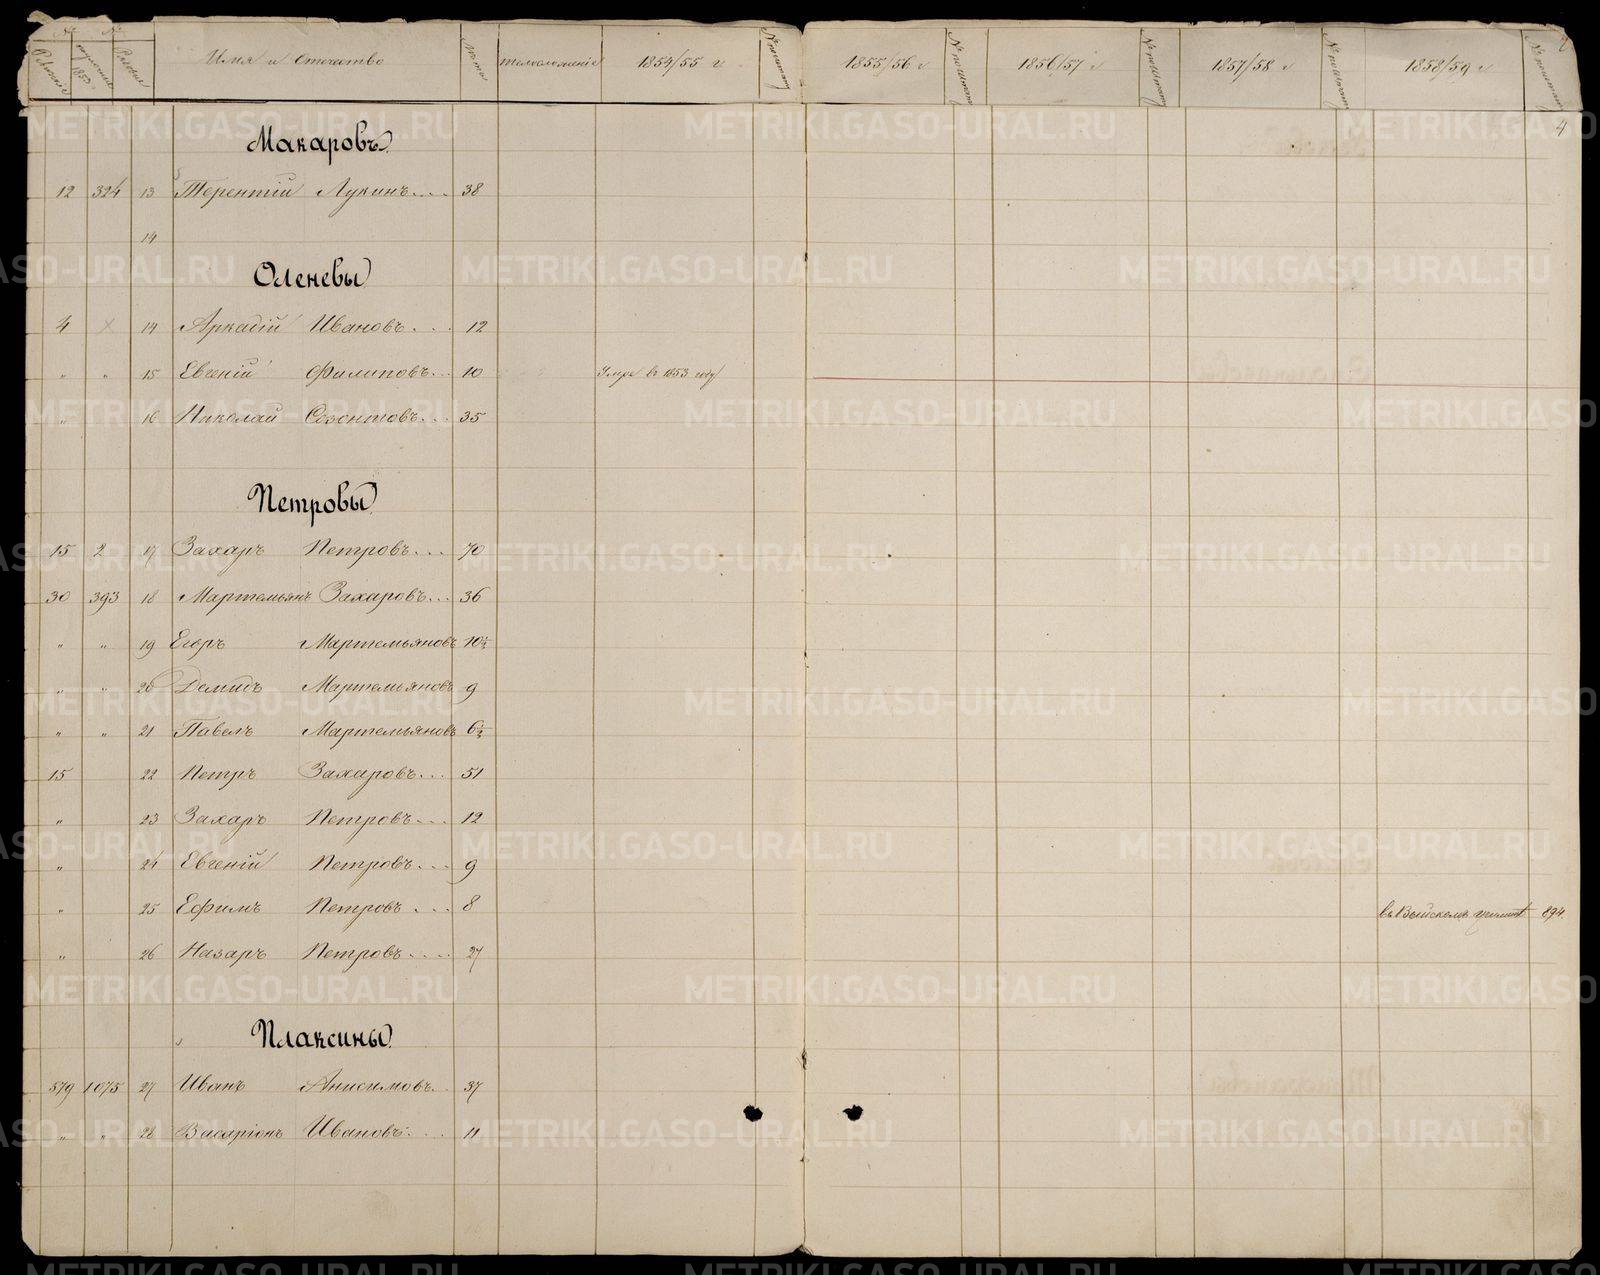 № №
Имя и Отчество Лѣта телосложеніе 1854/55 г 1855/56 г 1856/57 г 1857/58 г 1858/59 г
4
Макаровъ
12 324 13 Терентій Лукинъ.... 38
14
Оленевы
4 x 14 Аркадій Ивановъ.... 12
" " 15 Евгеній Филиповъ... 10 Умре въ 1853 году
" 16 Николай Созонтовъ... 35
Петровы
15 2 17 Захаръ Петровъ... 70
30 393 18 Мартемьянъ Захаровъ... 36
" " 19 Егоръ Мартемьяновъ 10½
" " 20 Демидъ Мартемьяновъ 9
" " 21 Павелъ Мартемьяновъ 6½
15 22 Петръ Захаровъ... 51
" 23 Захаръ Петровъ... 12
" 24 Евгеній Петровъ... 9
" 25 Ефимъ Петровъ... 8 въ Выйскомъ 894.
" 26 Назаръ Петровъ.... 27
Плаксины
579 1075 27 Иванъ Анисимовъ.. 37
" " 28 Васаріонъ Ивановъ.... 11
METRIKI.GASO-URAL.RU